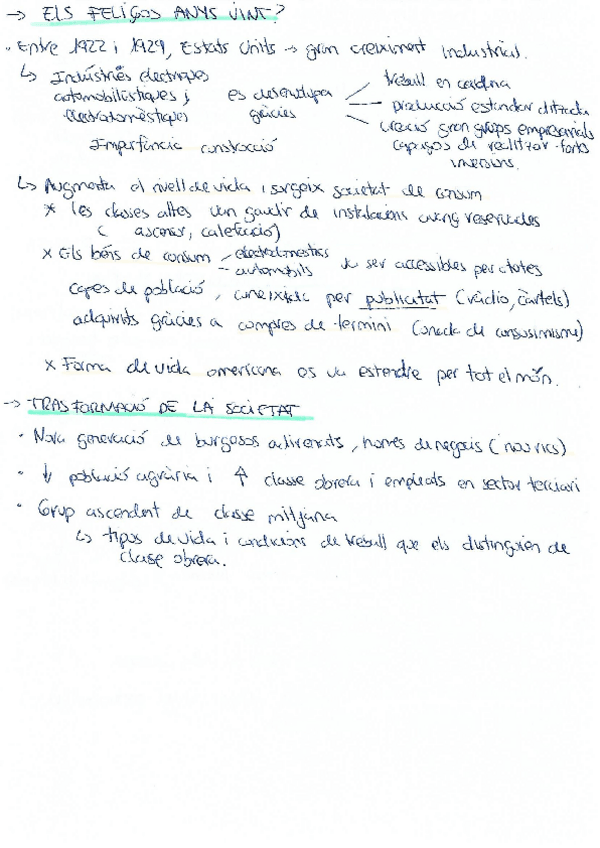 → ELS FELIÇOS ANYS VINT?
· Entre 1922 i 1929, Estats Units → gran creixement industrial.
↳ Indústries elèctriques automobilístiques i electrodomèstiques es desenvolupa gràcies
treball en cadena
producció estandarditzada
creació gran grups empresarials capaços de realitzar forts inversions.
Importància construcció
↳ Augmenta el nivell de vida i sorgeix societat de consum
* les classes altes van gaudir de instalacions reservades
( ascensor, calefacció)
x Els béns de consum
electrodomèstics
automòbils
va ser accessibles per a totes
capes de població, per publicitat (ràdio, cartels)
adquirits gràcies a compres de termini (onada de consumisme)
x Forma de vida americana es va estendre per tot el món.
→ TRASFORMACIÓ DE LA SOCIETAT
· Nova generació de burgesos, homes de negocis (nou rics)
· ↓ població agrària i ↑ classe obrera i empleats en sector terciari
· Grup ascendent de classe mitjana
↳ tipus de vida i condicions de treball que els distingien de
classe obrera.